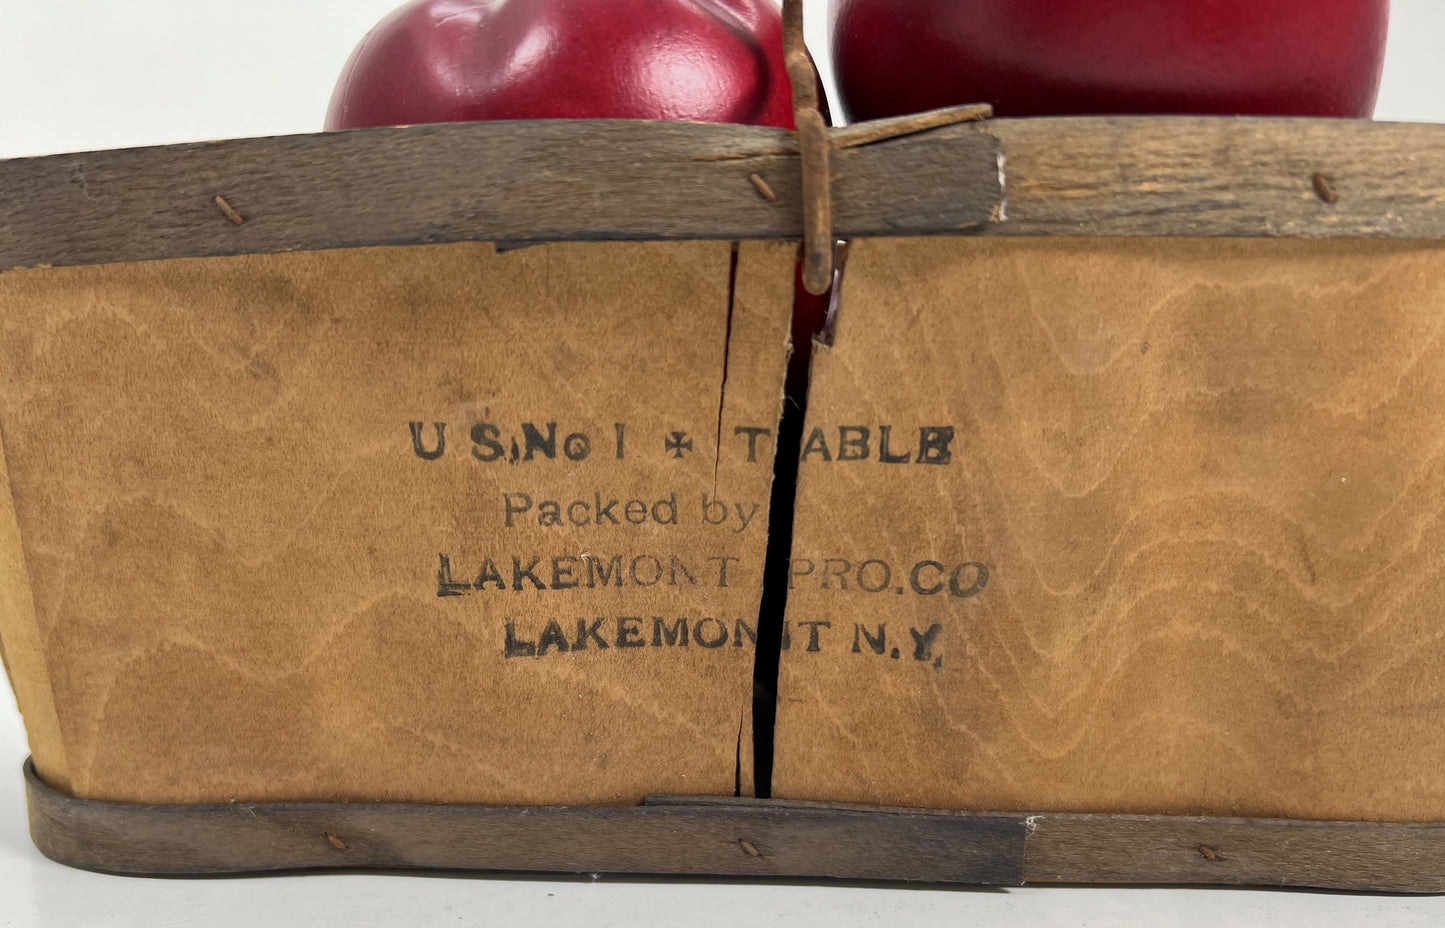 U.S. No 1 ✠ TABLE
Packed by
LAKEMONT PRO.CO
LAKEMONT N.Y.